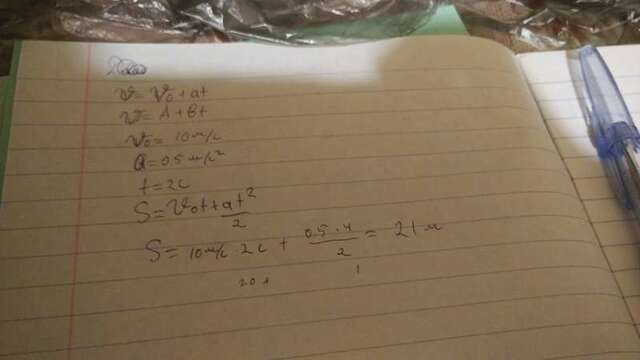 V = V₀ + at
V = A + Bt
V₀ = 10 м/с
a = 0.5 м/с²
t = 2с
S = V₀t + at²/2
S = 10 м/с · 2с + 0.5 · 4/2 = 21 м
20 + 1